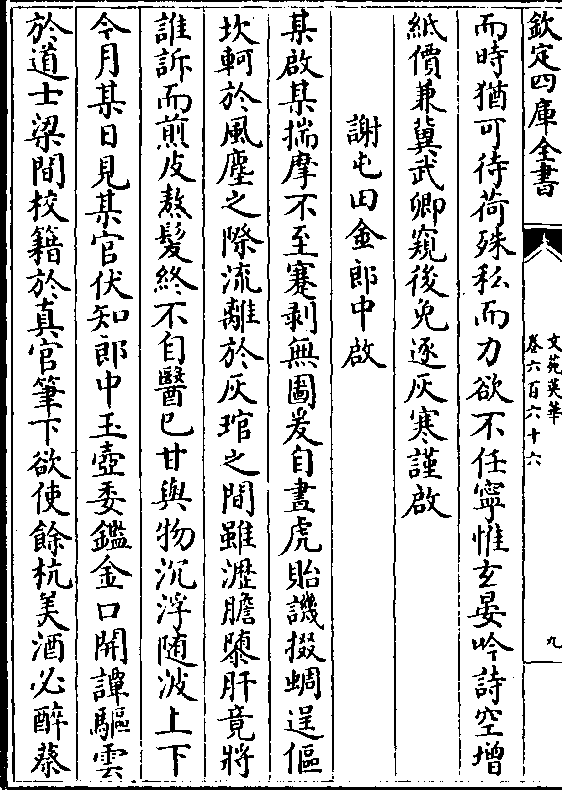 欽定四庫全書
文苑英華
卷六百六十六
九
而時猶可待荷殊私而力欲不任寧惟玄晏吟詩空增
紙價兼冀武卿窺後免逐灰寒謹啟
謝屯田金郎中啟
某啟某揣摩不至蹇剥無圖爰自畫虎貽譏掇蜩逞傴
坎軻於風塵之際流離於灰琯之間雖瀝膽隳肝竟將
誰訴而煎皮熬髮終不自醫已甘與物沉浮随波上下
今月某日見某官伏知郎中玉壺委鑑金口開譚驅雲
於道士梁間校籍於真官筆下欲使餘杭美酒必醉蔡